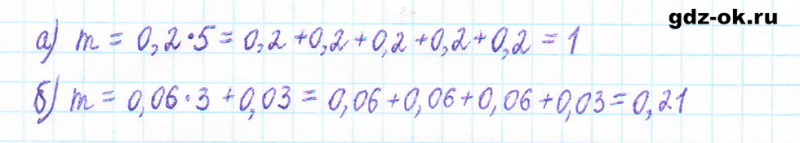 gdz-ok.ru
а) m = 0,2·5 = 0,2+0,2+0,2+0,2+0,2 = 1
б) m = 0,06·3+0,03 = 0,06+0,06+0,06+0,03 = 0,21